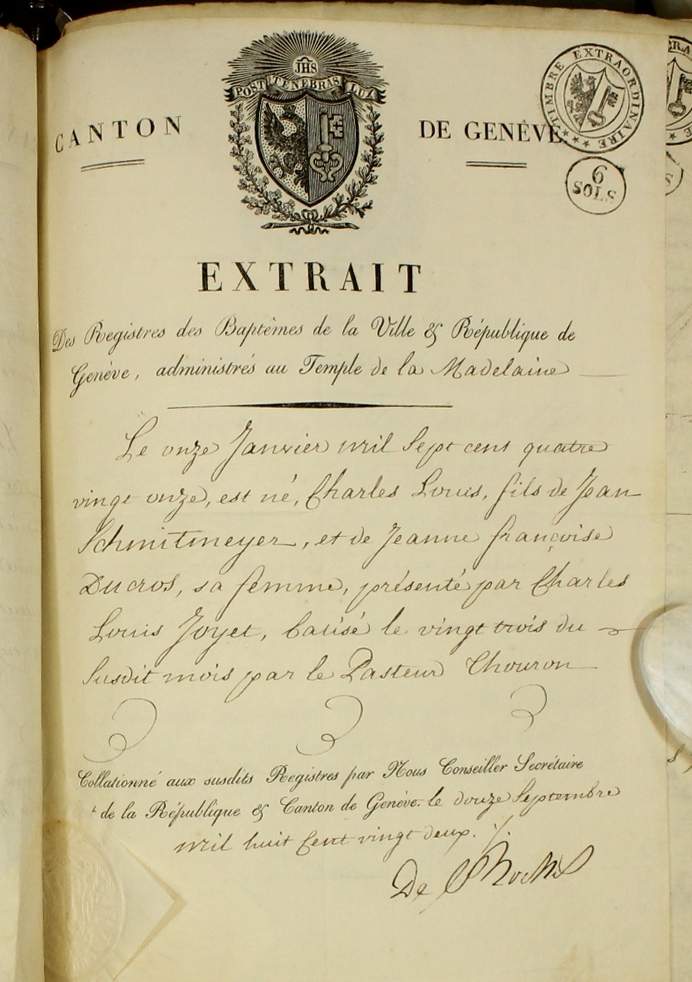 JHS
POST TENEBRAS LUX
CANTON DE GENÈVE
TIMBRE EXTRAORDINAIRE
6
SOLS
EXTRAIT
Des Registres des Baptêmes de la Ville & République de
Genève, administrés au Temple de la Madelaine
Le onze Janvier mil Sept cens quatre
vingt onze, est né, Charles Louis, fils de Jean
Schmitmeyer, et de Jeanne françoise
Ducros, sa femme, présenté par Charles
Louis Joyet, batisé le vingt trois du
susdit mois par le Pasteur Chouron
Collationné aux susdits Registres par Nous Conseiller Secrétaire
de la République & Canton de Genève. le douze Septembre
mil huit Cent vingt deux. /.